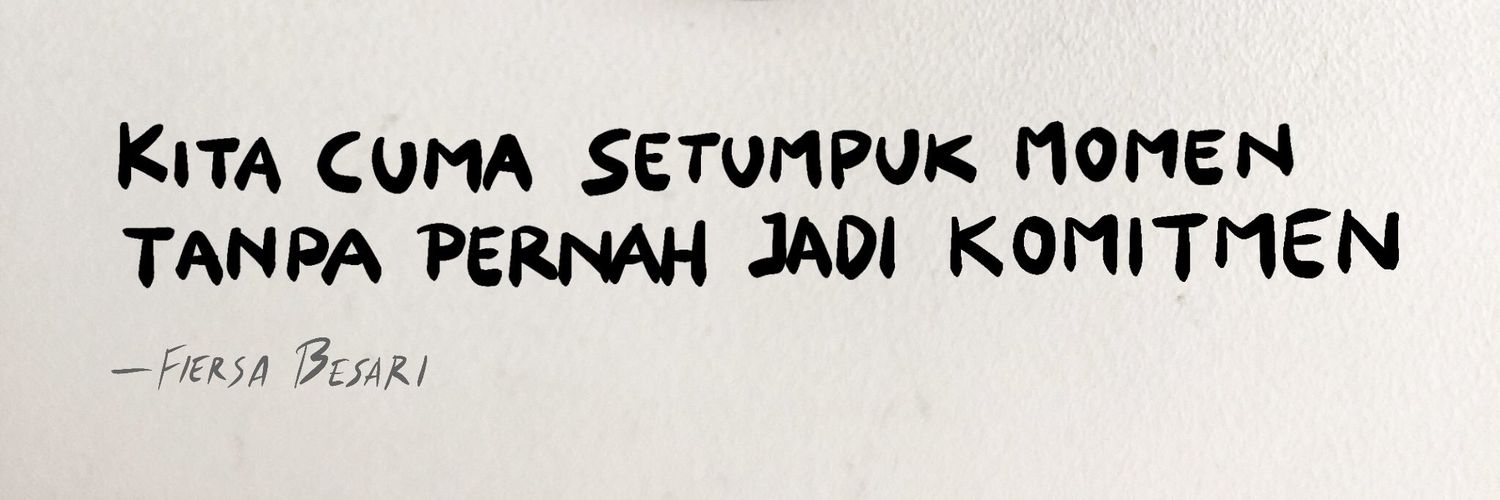 KITA CUMA SETUMPUK MOMEN
TANPA PERNAH JADI KOMITMEN
—FIERSA BESARI